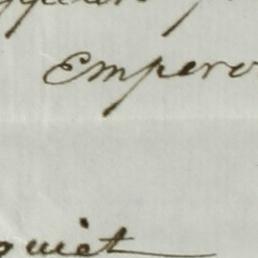 Empero
quiet